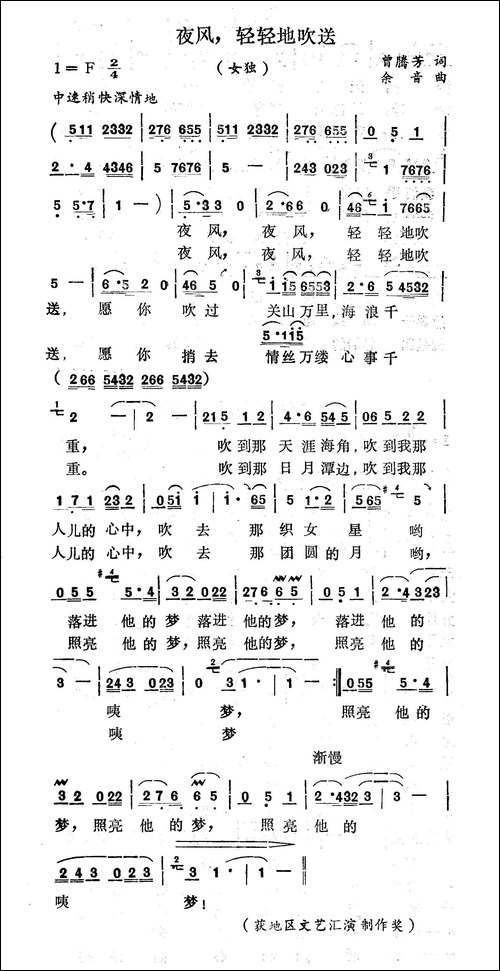 夜风，轻轻地吹送
1=F 2/4
（女独）
曾腾芳 词
余音 曲
中速稍快深情地
( 511 2332 | 276 655 | 511 2332 | 276 655 | 0 5 1 |
2·4 4346 | 5 7676 | 5 — | 243 023 | 3 1 7676 |
5 5·7 | 1 — ) | 5·33 0 | 2·66 0 | 46 6 i 7665 |
夜风， 夜风， 轻轻地吹
夜风， 夜风， 轻轻地吹
5 — | 6·5 2 0 | 46 5 0 | 3 i i5 6553 | 2·6 5 4532 |
送， 愿你 吹过 关山万里，海浪千
5·1i5
送， 愿你 捎去 情丝万缕 心事千
( 266 5432 266 5432 )
1 2 — | 2 — | 215 1 2 | 4·6 545 | 065 2 2 |
重， 吹到那 天涯海角，吹到我那
重。 吹到那 日月潭边，吹到我那
1 7 1 232 | 0 5i i | i i·65 | 5 1·2 | 565 #4 5 |
人儿的 心中，吹去 那织女星 哟
人儿的 心中，吹去 那团圆的月 哟，
055 #4 5·4 | 32 022 | 276 65 | 051 | 2·4323 |
落进 他的梦 落进 他的梦， 落进 他的
照亮 他的梦，照亮 他的梦， 照亮 他的
3 — | 243 023 | 0 2 31· | 1 — :| 055 #4 5·4 |
咦 梦， 照亮 他的
咦 梦
渐慢
32 022 | 276 65 | 0 5 1 | 2·4323 | 3 — |
梦，照亮 他的梦， 照亮 他的
243 023 | 2 3 1· | 1 — ||
咦 梦！
（获地区文艺汇演制作奖）